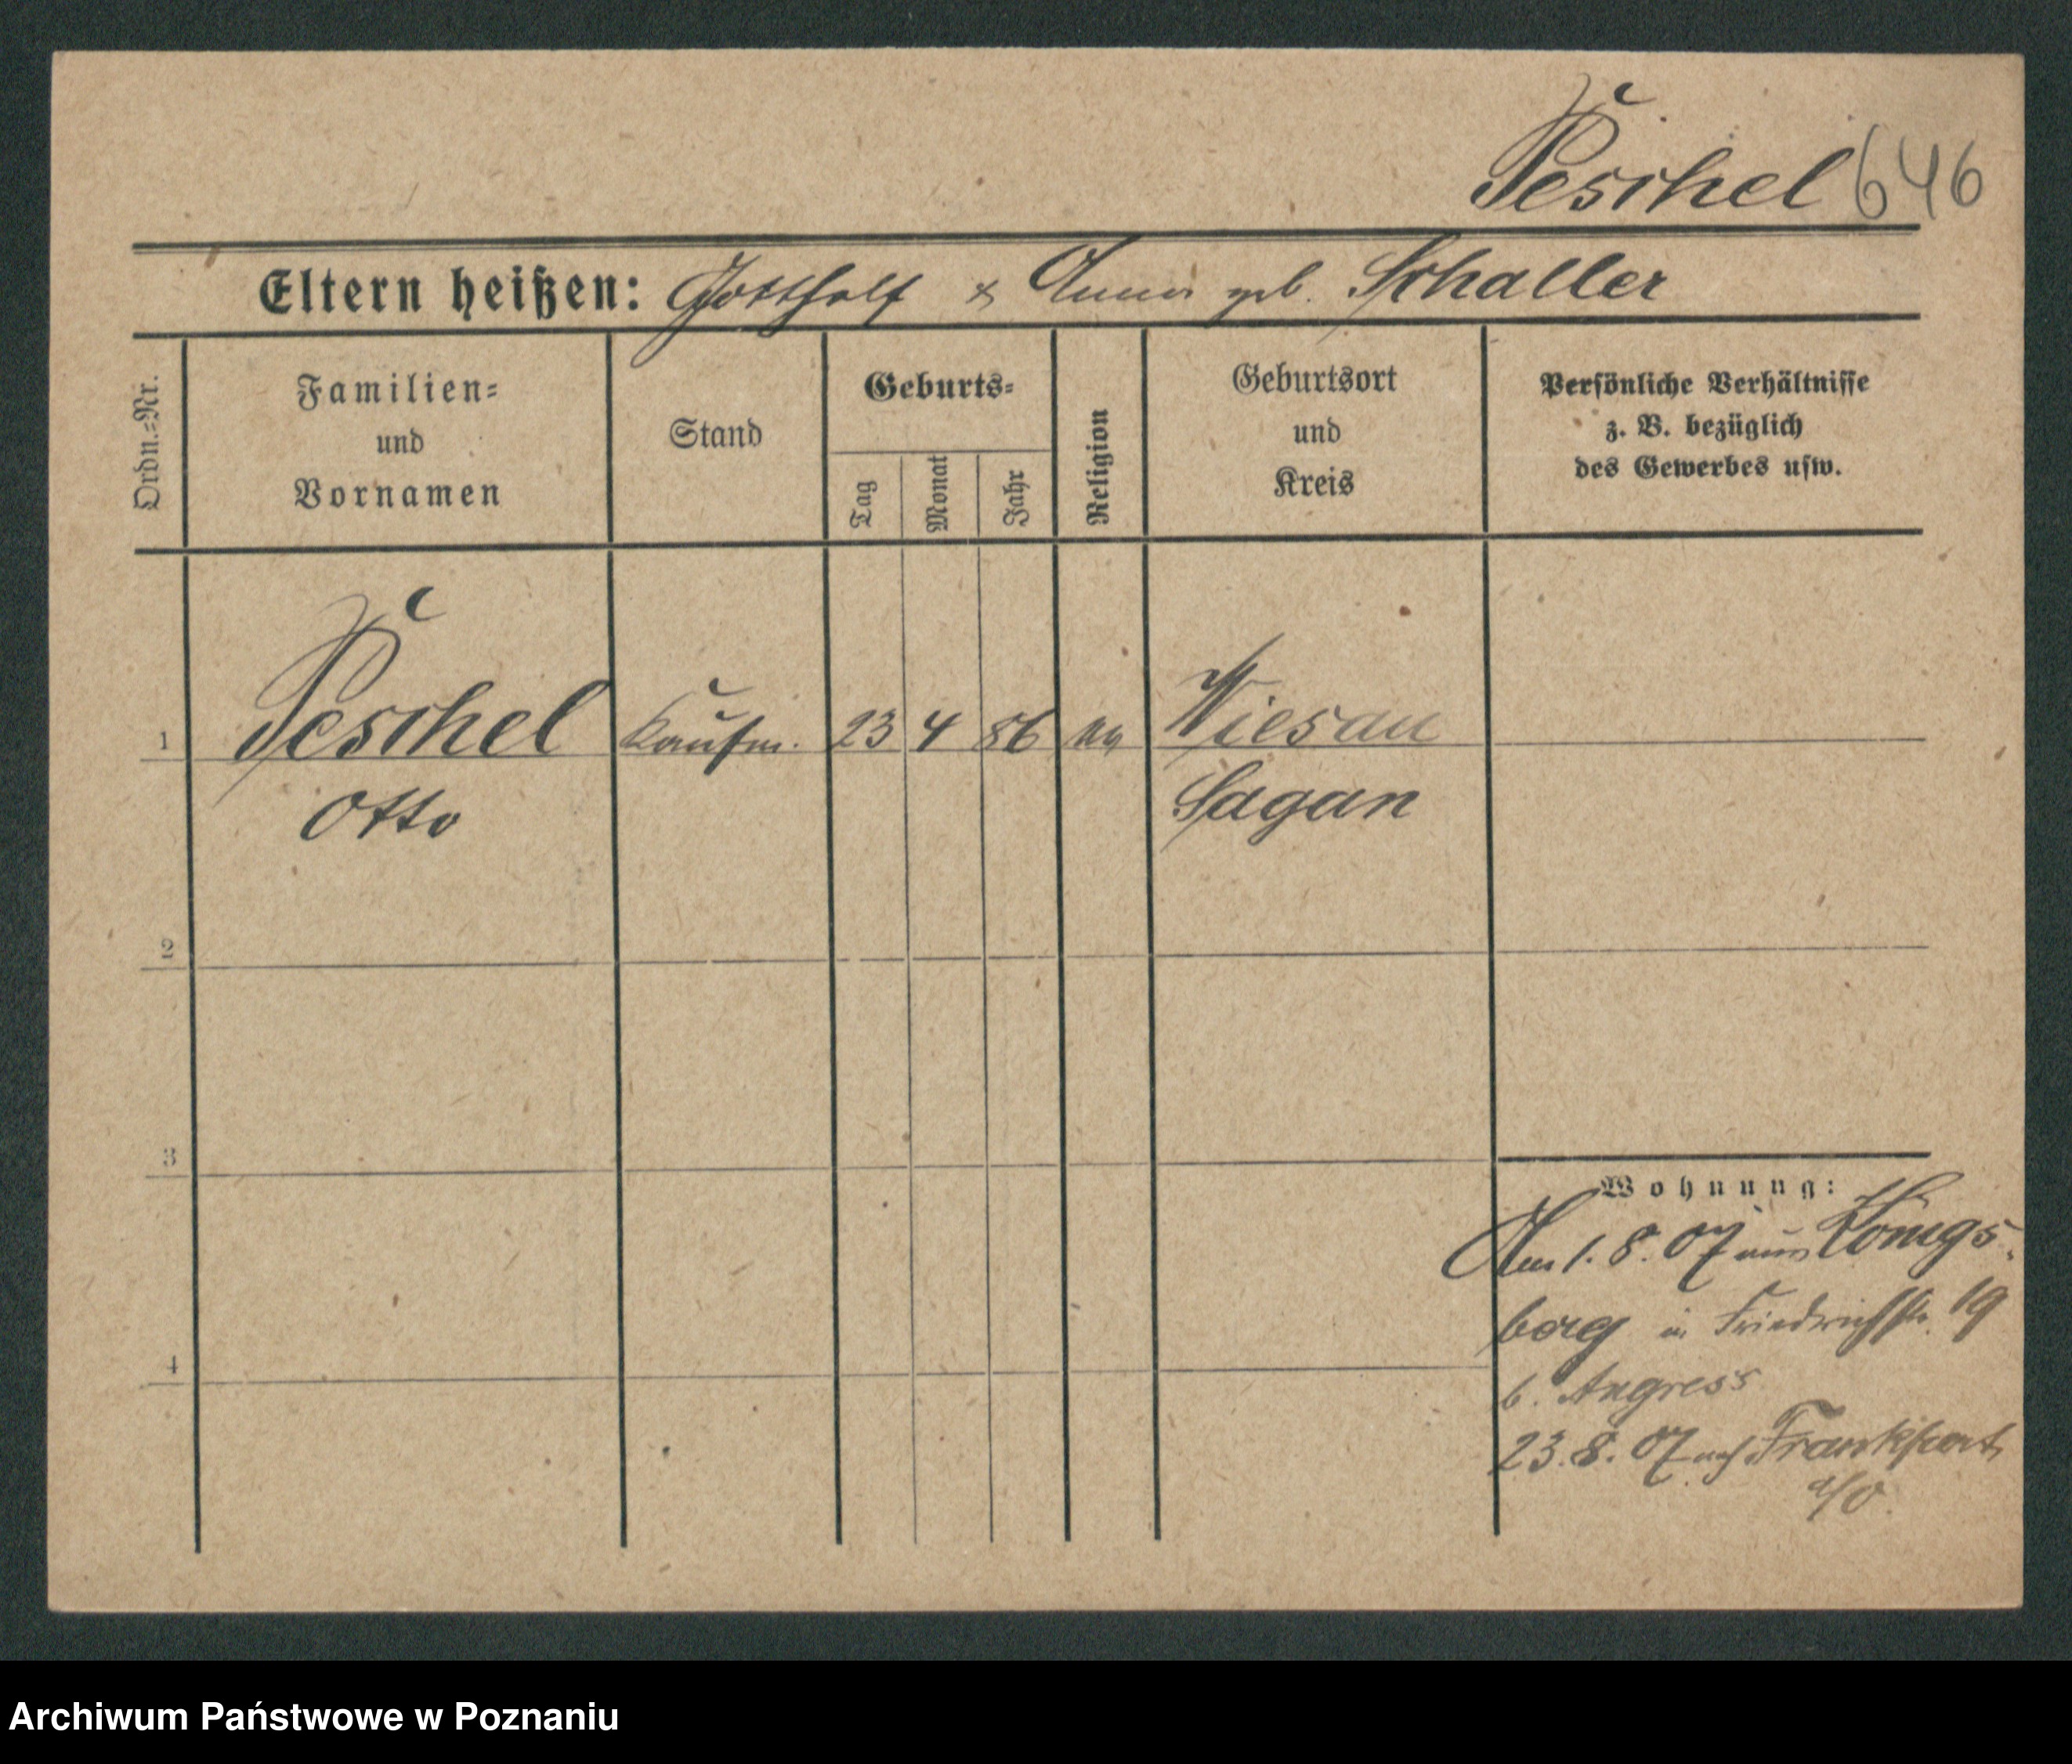 Peschel 646
Eltern heißen: Gotthelf & Anna geb. Schaller
Ordn.=Nr.
Familien=
und
Vornamen
Stand
Geburts=
Tag
Monat
Jahr
Religion
Geburtsort
und
Kreis
Persönliche Verhältnisse
z. B. bezüglich
des Gewerbes usw.
1 Peschel Kaufm. 23 4 86 Wiesau
Otto Sagan
2
3
4
Wohnung:
Am 1. 8. 07 aus Königs-
berg in Friedrichstr. 19
b. Angress
23. 8. 07 nach Frankfurt
a/O.
Archiwum Państwowe w Poznaniu